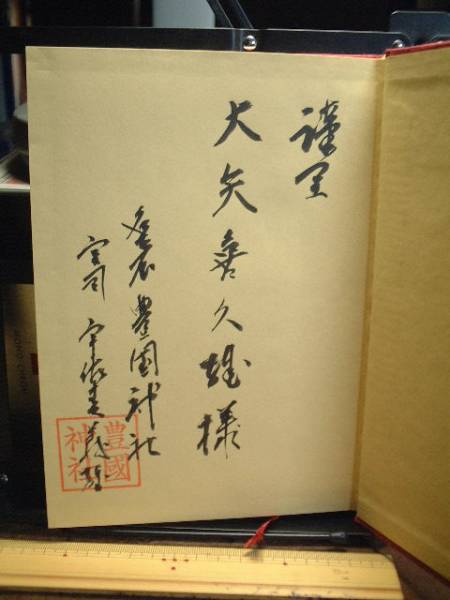 謹呈
大矢喜久雄様
豊國神社
宮司 宇佐美
豊國
神社